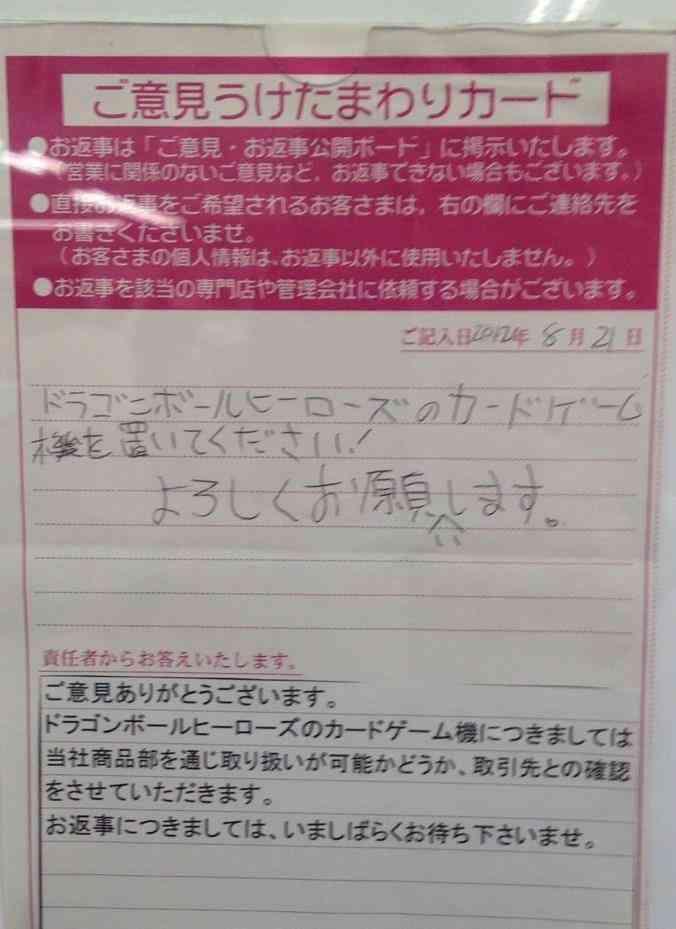 ご意見うけたまわりカード
●お返事は「ご意見・お返事公開ボード」に掲示いたします。
（営業に関係のないご意見など、お返事できない場合もございます。）
●直接お返事をご希望されるお客さまは、右の欄にご連絡先を
お書きくださいませ。
（お客さまの個人情報は、お返事以外に使用いたしません。）
●お返事を該当の専門店や管理会社に依頼する場合がございます。
ご記入日2012年 8月 21日
ドラゴンボールヒーローズのカードゲーム
機を置いてください！
よろしくお願いします。
責任者からお答えいたします。
ご意見ありがとうございます。
ドラゴンボールヒーローズのカードゲーム機につきましては
当社商品部を通じ取り扱いが可能かどうか、取引先との確認
をさせていただきます。
お返事につきましては、いましばらくお待ち下さいませ。